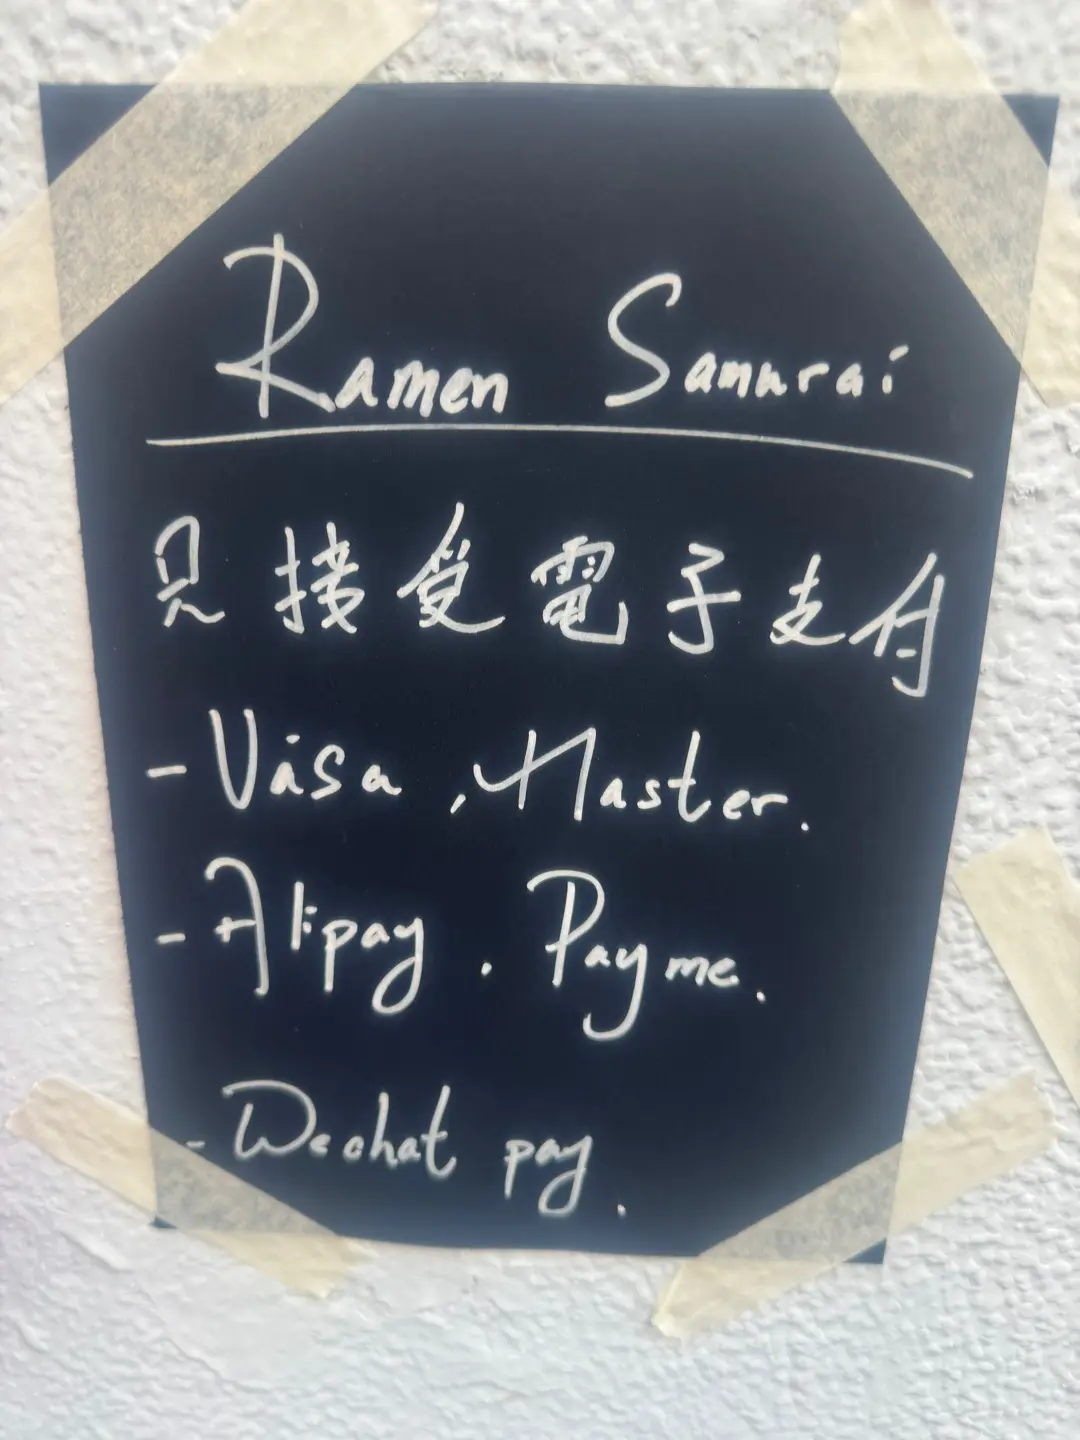 Ramen Samurai
只接受電子支付
- Visa , Master.
- Alipay . Payme.
- Wechat pay .